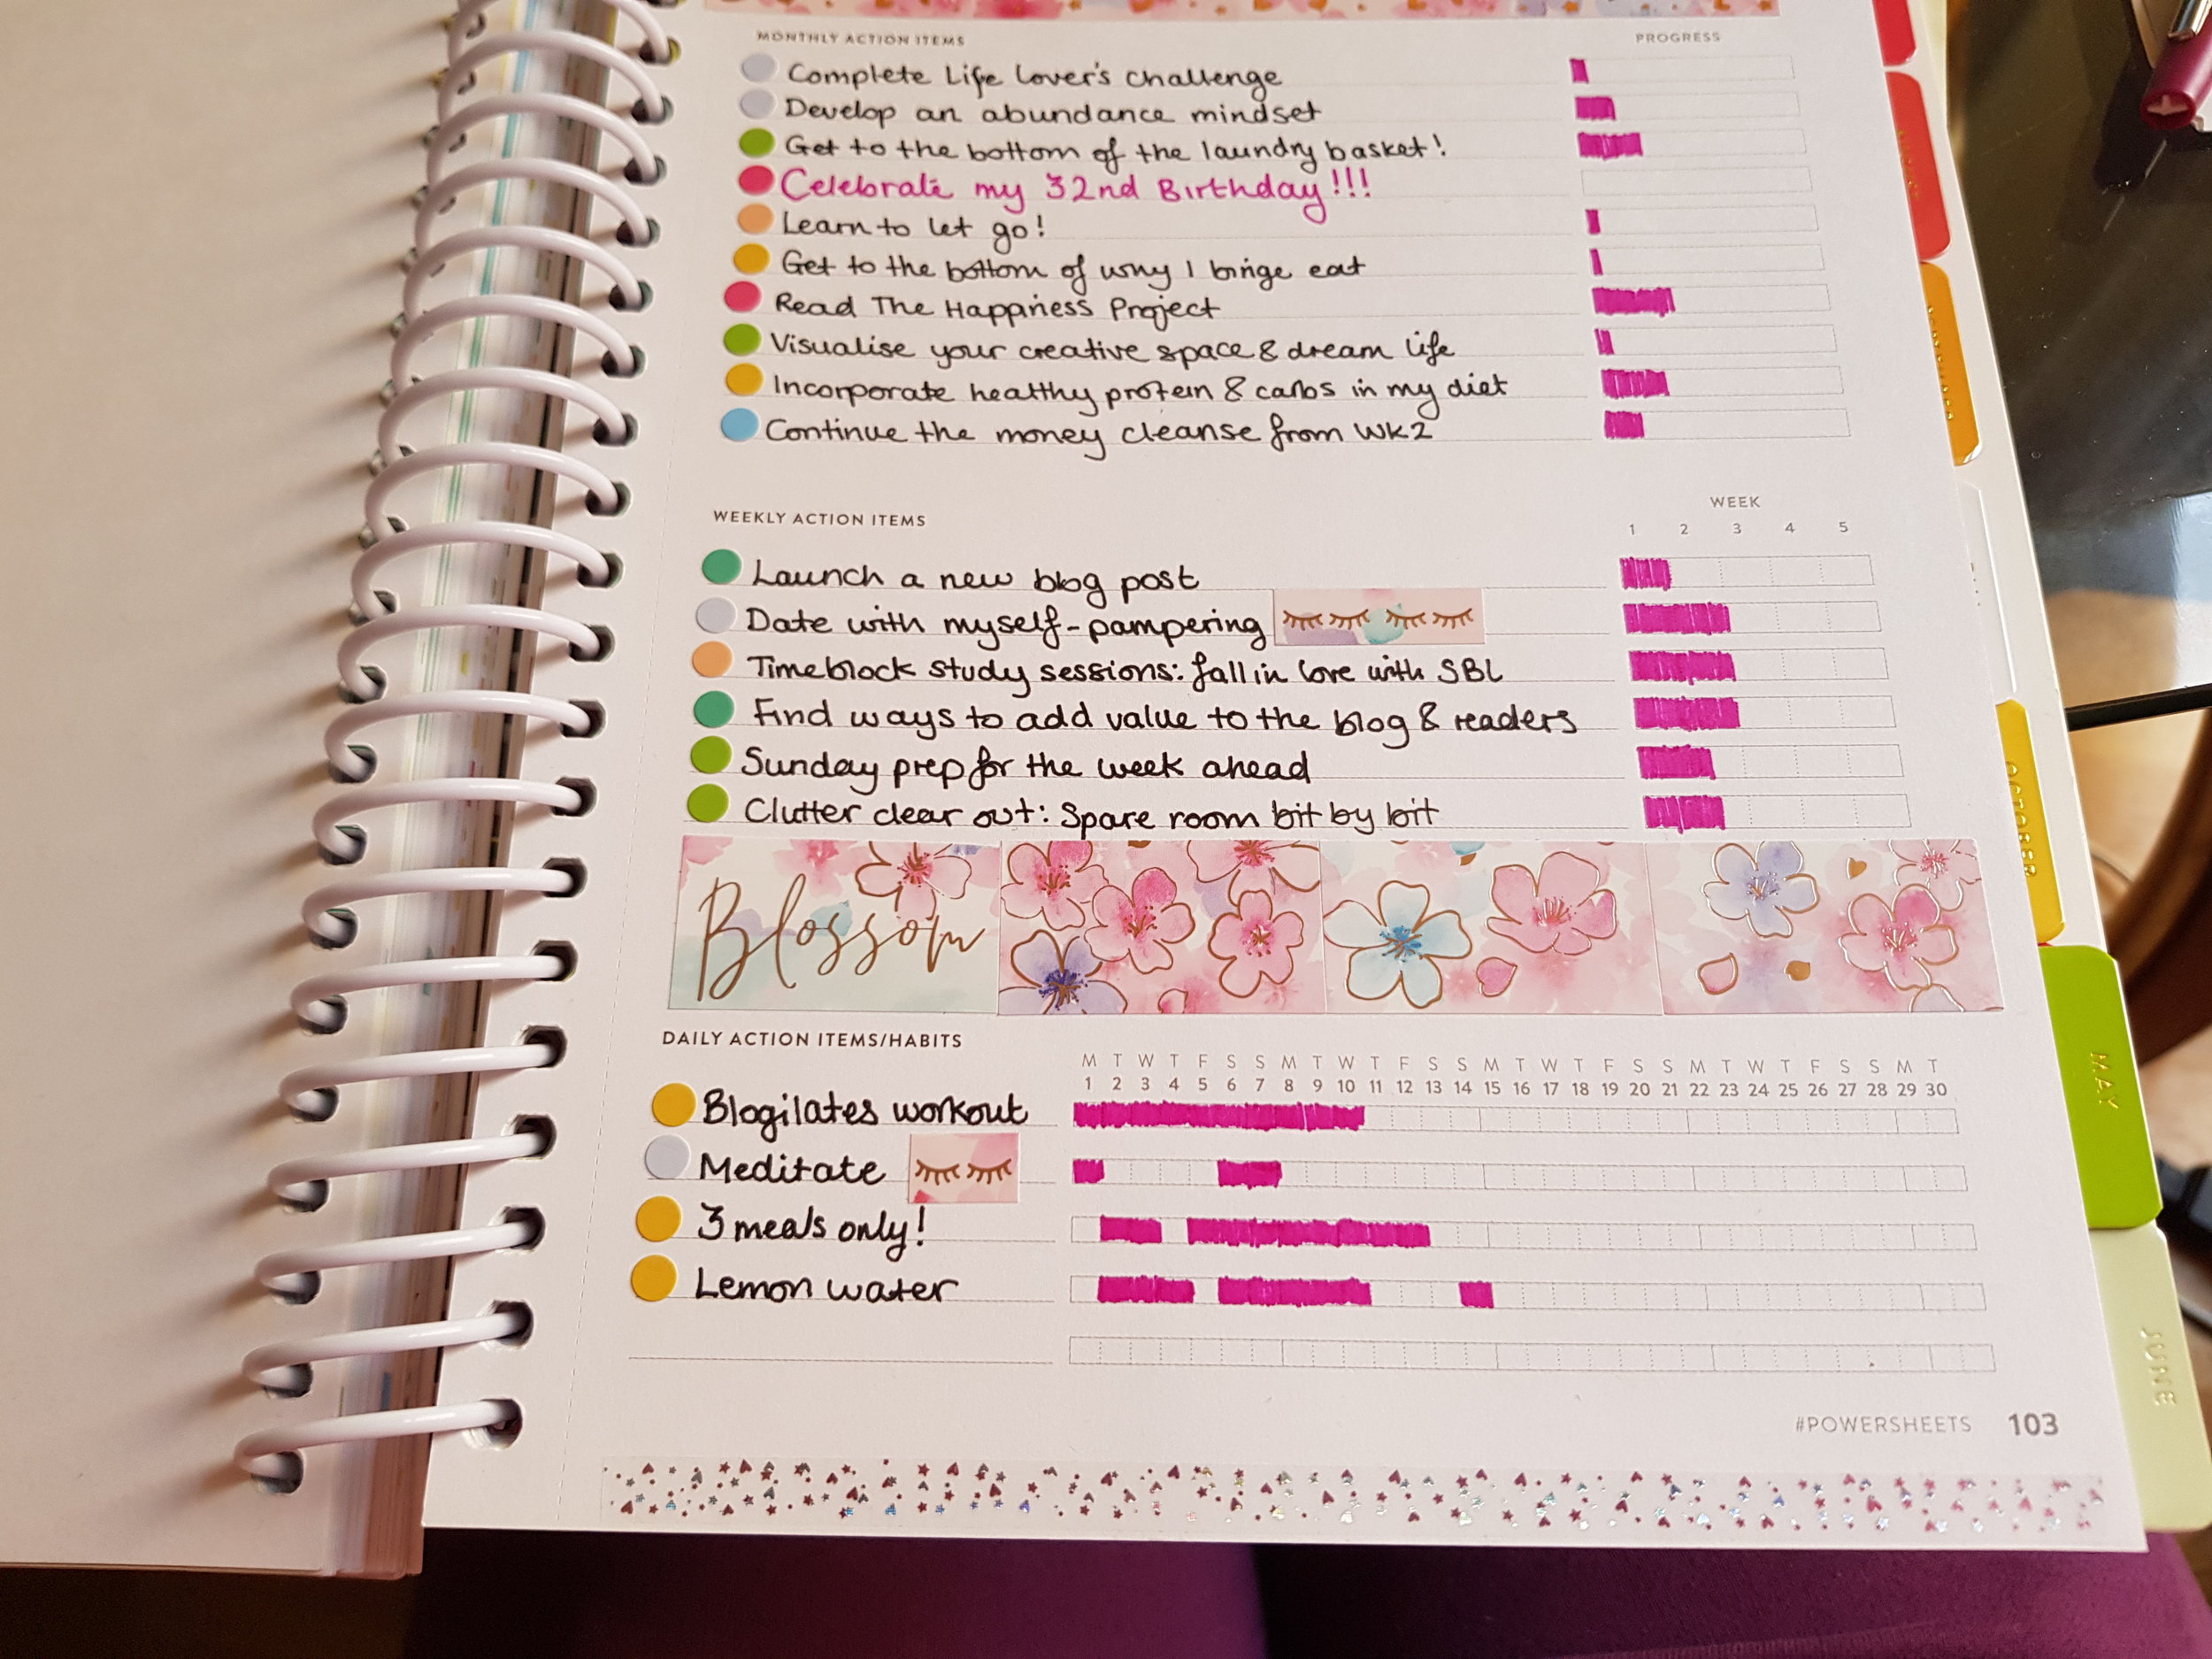 MONTHLY ACTION ITEMS PROGRESS
Complete Life Lover's challenge
Develop an abundance mindset
Get to the bottom of the laundry basket!
Celebrate my 32nd Birthday!!!
Learn to let go!
Get to the bottom of why I binge eat
Read The Happiness Project
Visualise your creative space & dream life
Incorporate healthy protein & carbs in my diet
Continue the money cleanse from WK2
WEEK
WEEKLY ACTION ITEMS 1 2 3 4 5
Launch a new blog post
Date with myself - pampering
Timeblock study sessions: fall in love with SBL
Find ways to add value to the blog & readers
Sunday prep for the week ahead
Clutter clear out: Spare room bit by bit
OCTOBER
Blossom
DAILY ACTION ITEMS/HABITS
M T W T F S S M T W T F S S M T W T F S S M T W T F S S M T
1 2 3 4 5 6 7 8 9 10 11 12 13 14 15 16 17 18 19 20 21 22 23 24 25 26 27 28 29 30
MAY
Blogilates workout
Meditate
3 meals only!
Lemon water
JUNE
#POWERSHEETS 103